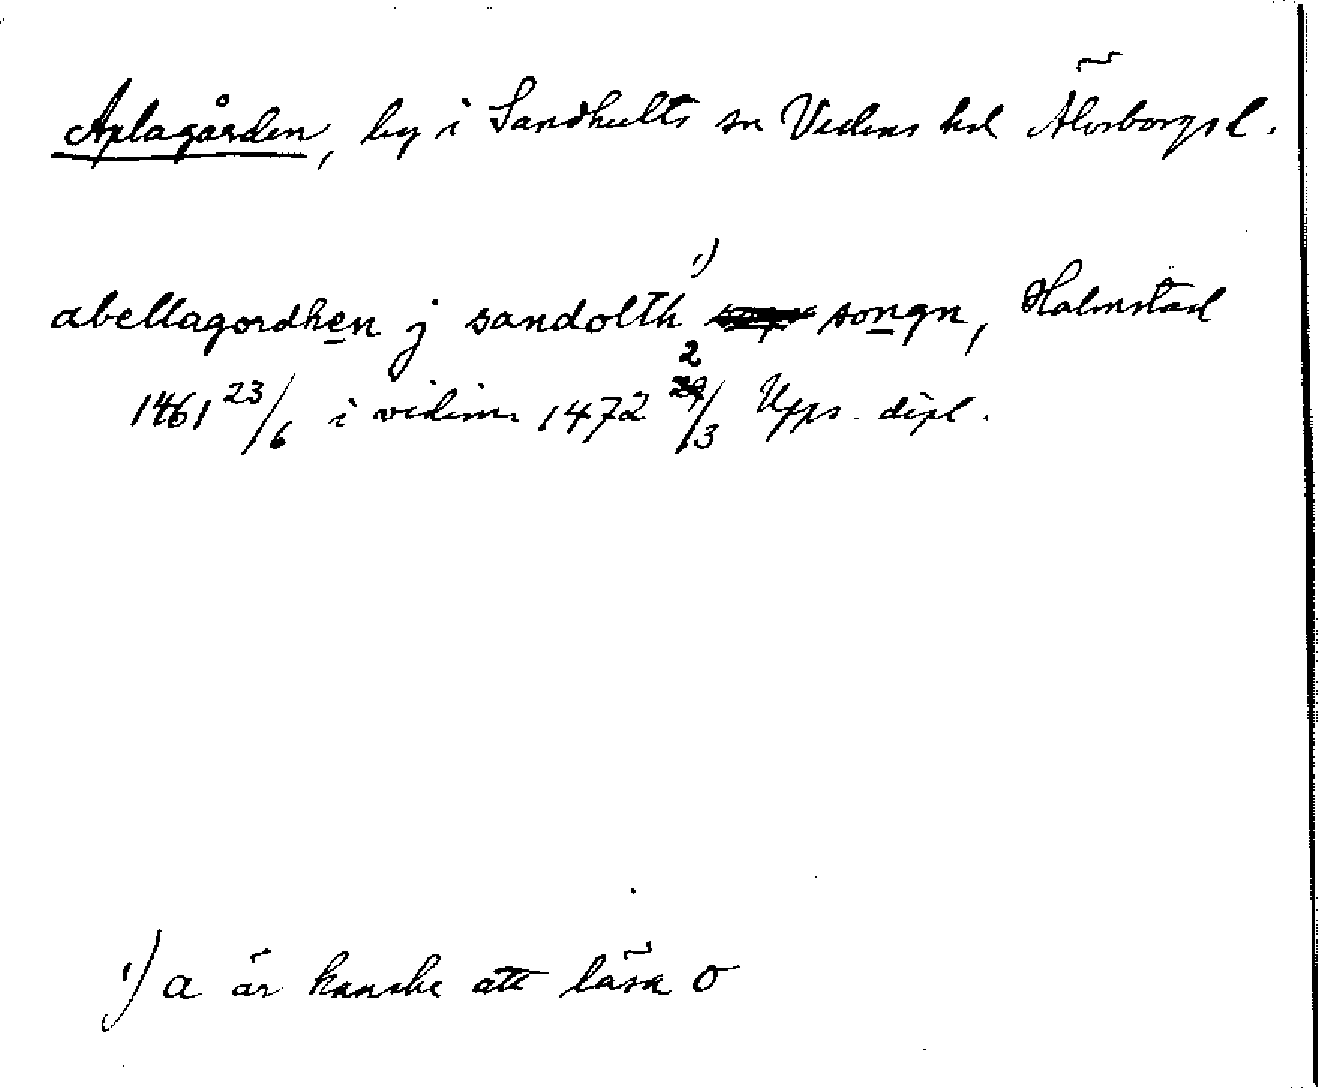 Aplagården, by i Sandhults sn Vedens hd Älvsborgs l.
abellagordhen j sandolth ¹) songn, Halmstad
1461 23/6 i vidim. 1472 2/3 Upps. dipl.
¹) a är kanske att läsa o